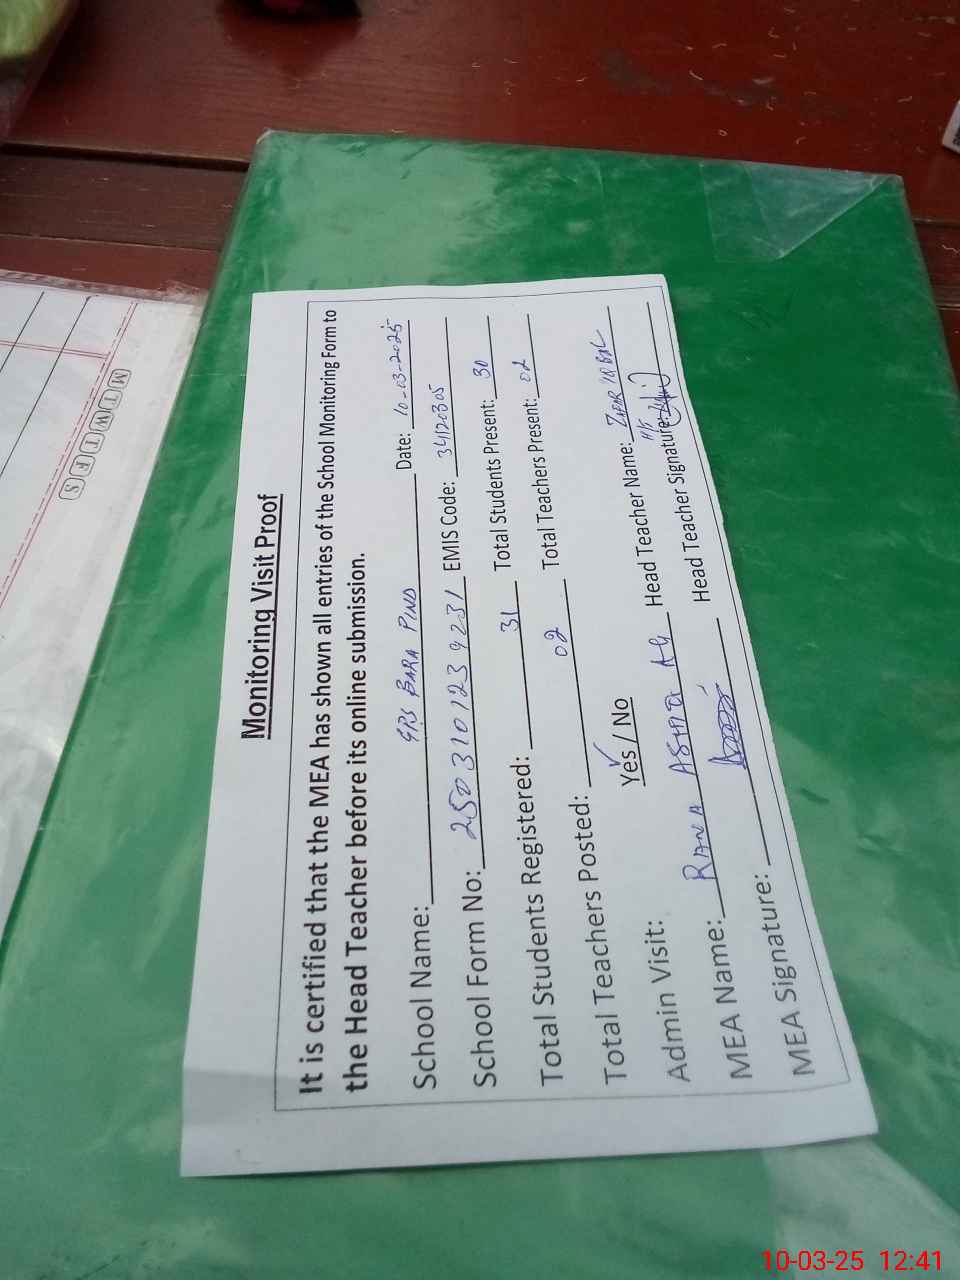 Monitoring Visit Proof
It is certified that the MEA has shown all entries of the School Monitoring Form to
the Head Teacher before its online submission.
School Name: GPS BARA PIND Date: 10-03-2025
School Form No: 25031012 EMIS Code: 34120305
Total Students Registered: 31 Total Students Present: 30
Total Teachers Posted: 02 Total Teachers Present: 02
Admin Visit: Yes / No Head Teacher Name: ZAFAR IQBAL
MEA Name: RANA Head Teacher Signature:
MEA Signature:
M T W T F S
10-03-25 12:41